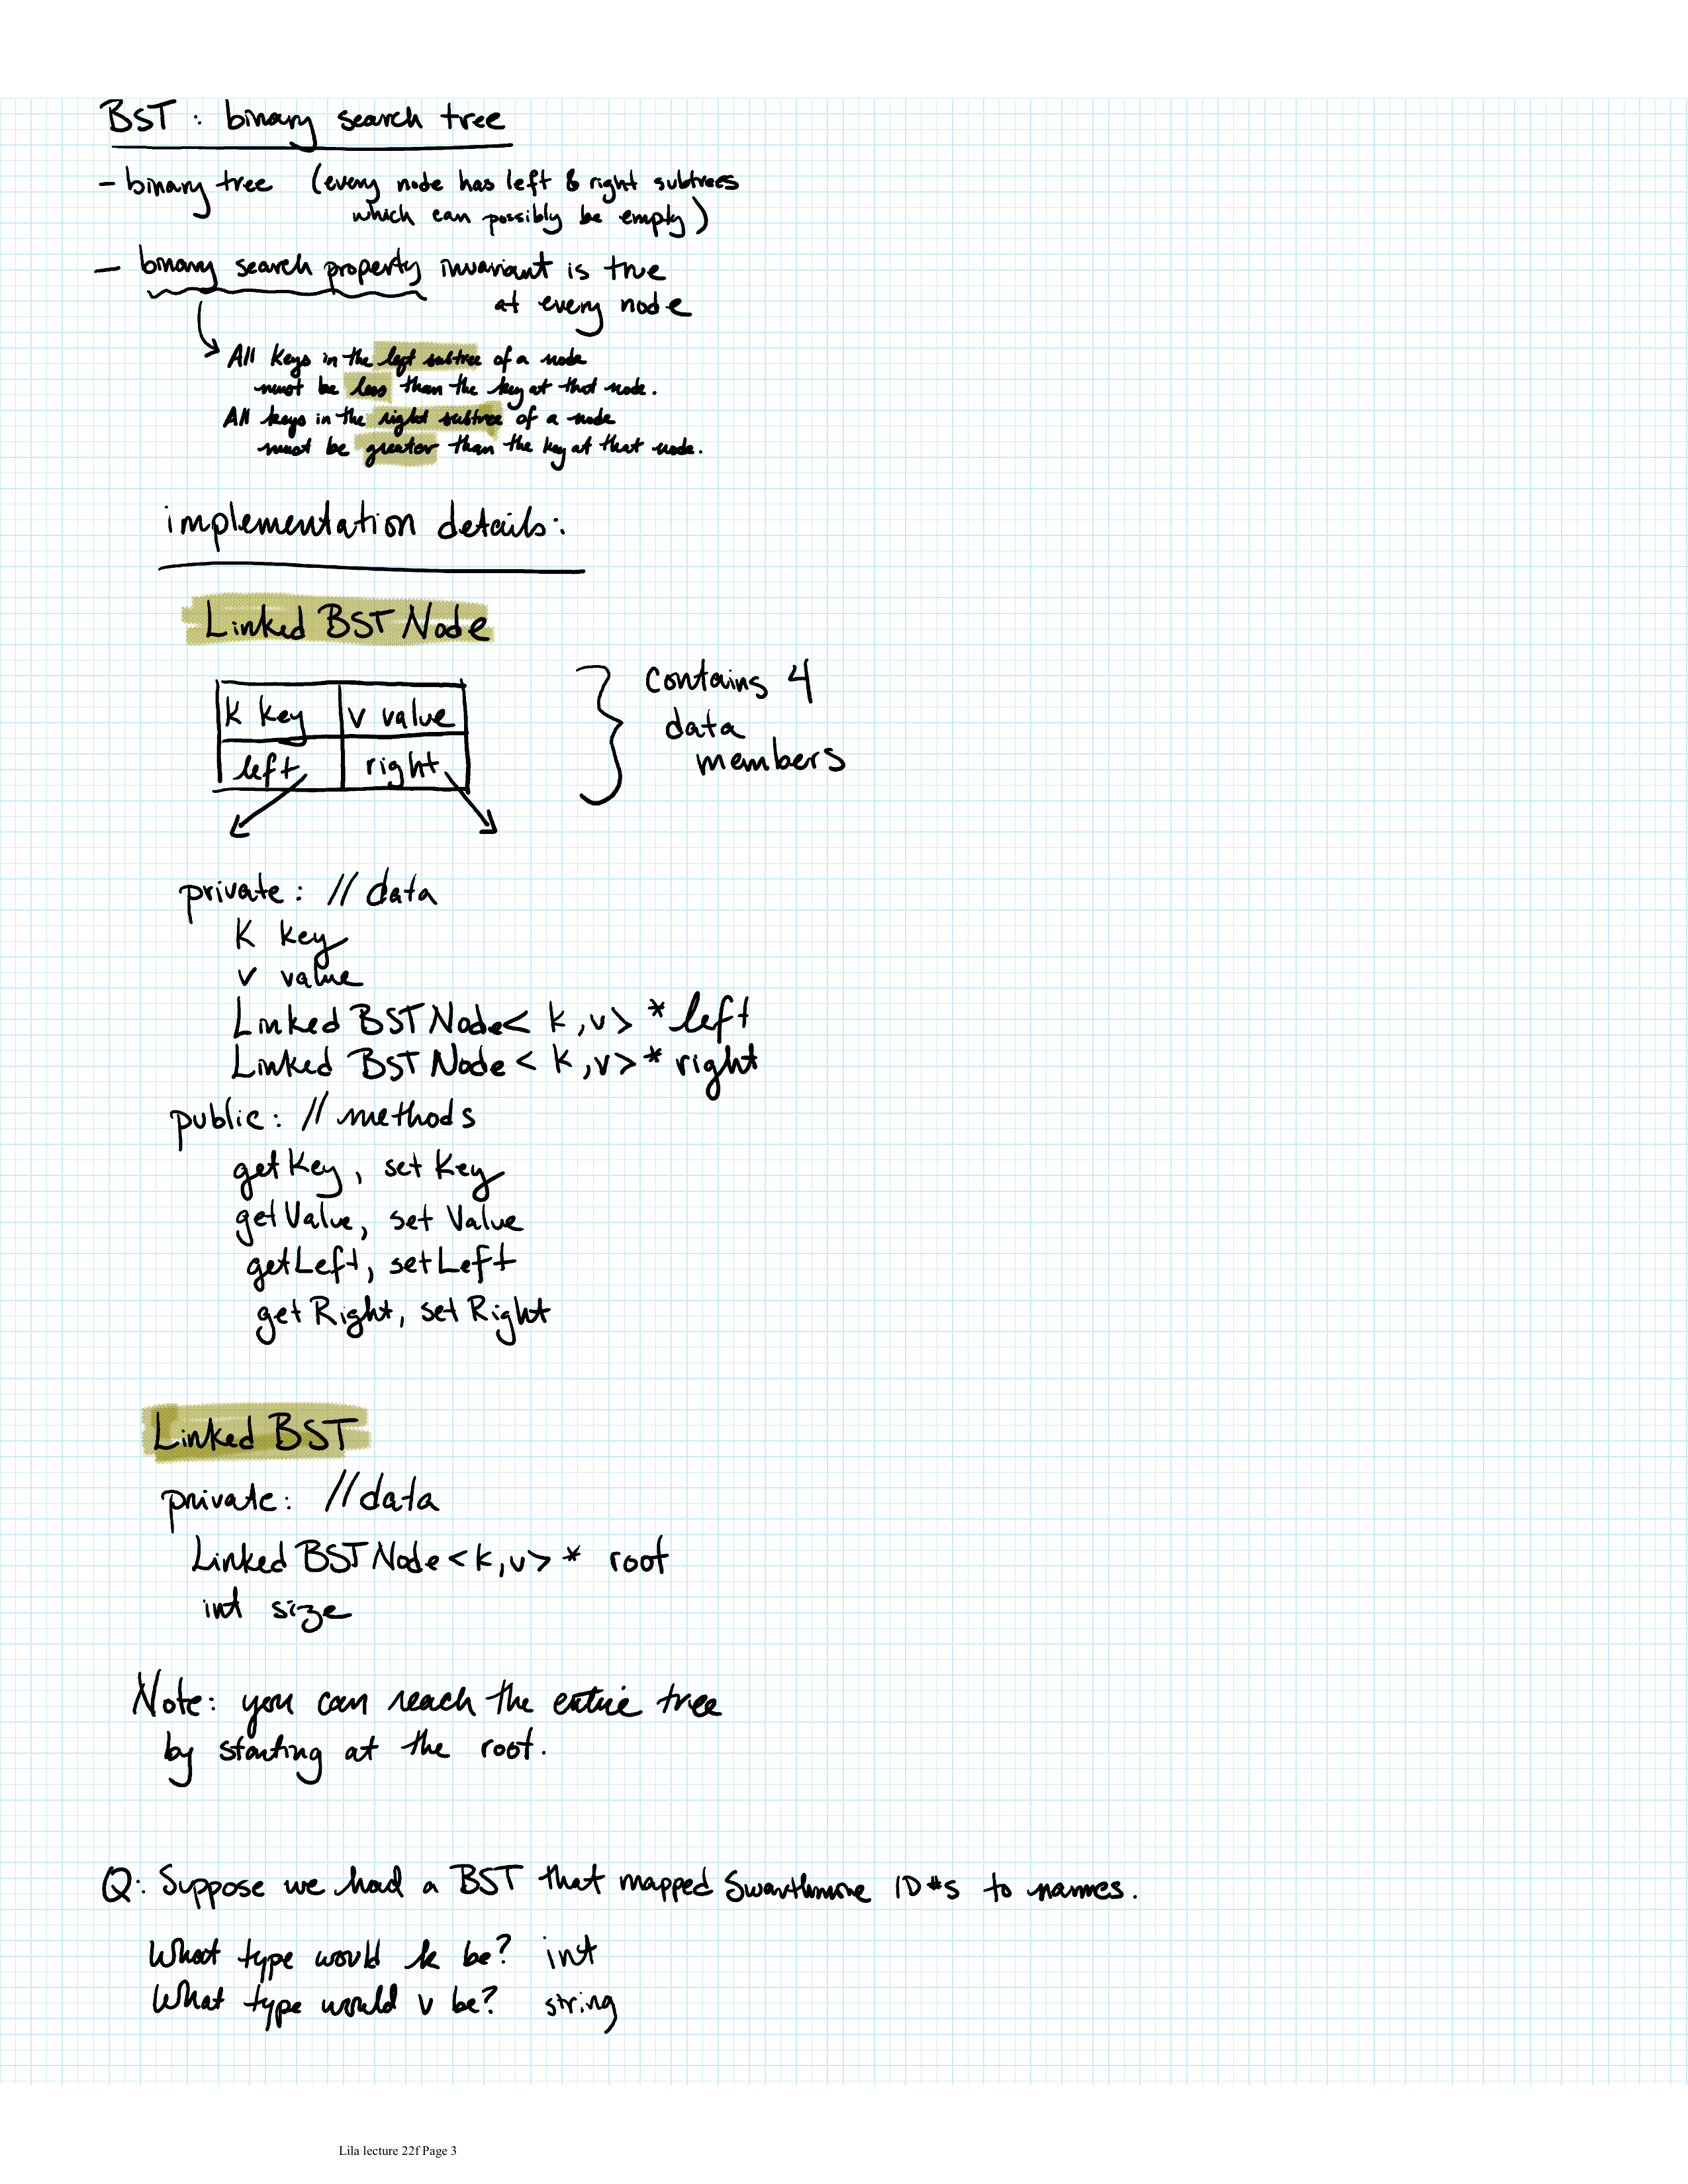 BST : binary search tree
- binary tree (every node has left & right subtrees
which can possibly be empty)
- binary search property invariant is true
at every node
All keys in the left subtree of a node
must be less than the key at that node.
All keys in the right subtree of a node
must be greater than the key at that node.
implementation details:
Linked BST Node
K key V value
left right
Contains 4
data
members
private: // data
K key
V value
Linked BST Node< K,V> * left
Linked BST Node < K,V> * right
public: // methods
getKey, setKey
getValue, setValue
getLeft, setLeft
getRight, setRight
Linked BST
private: // data
Linked BST Node <K,V> * root
int size
Note: you can reach the entire tree
by starting at the root.
Q: Suppose we had a BST that mapped Swarthmore ID #s to names.
What type would k be? int
What type would v be? string
Lila lecture 22f Page 3